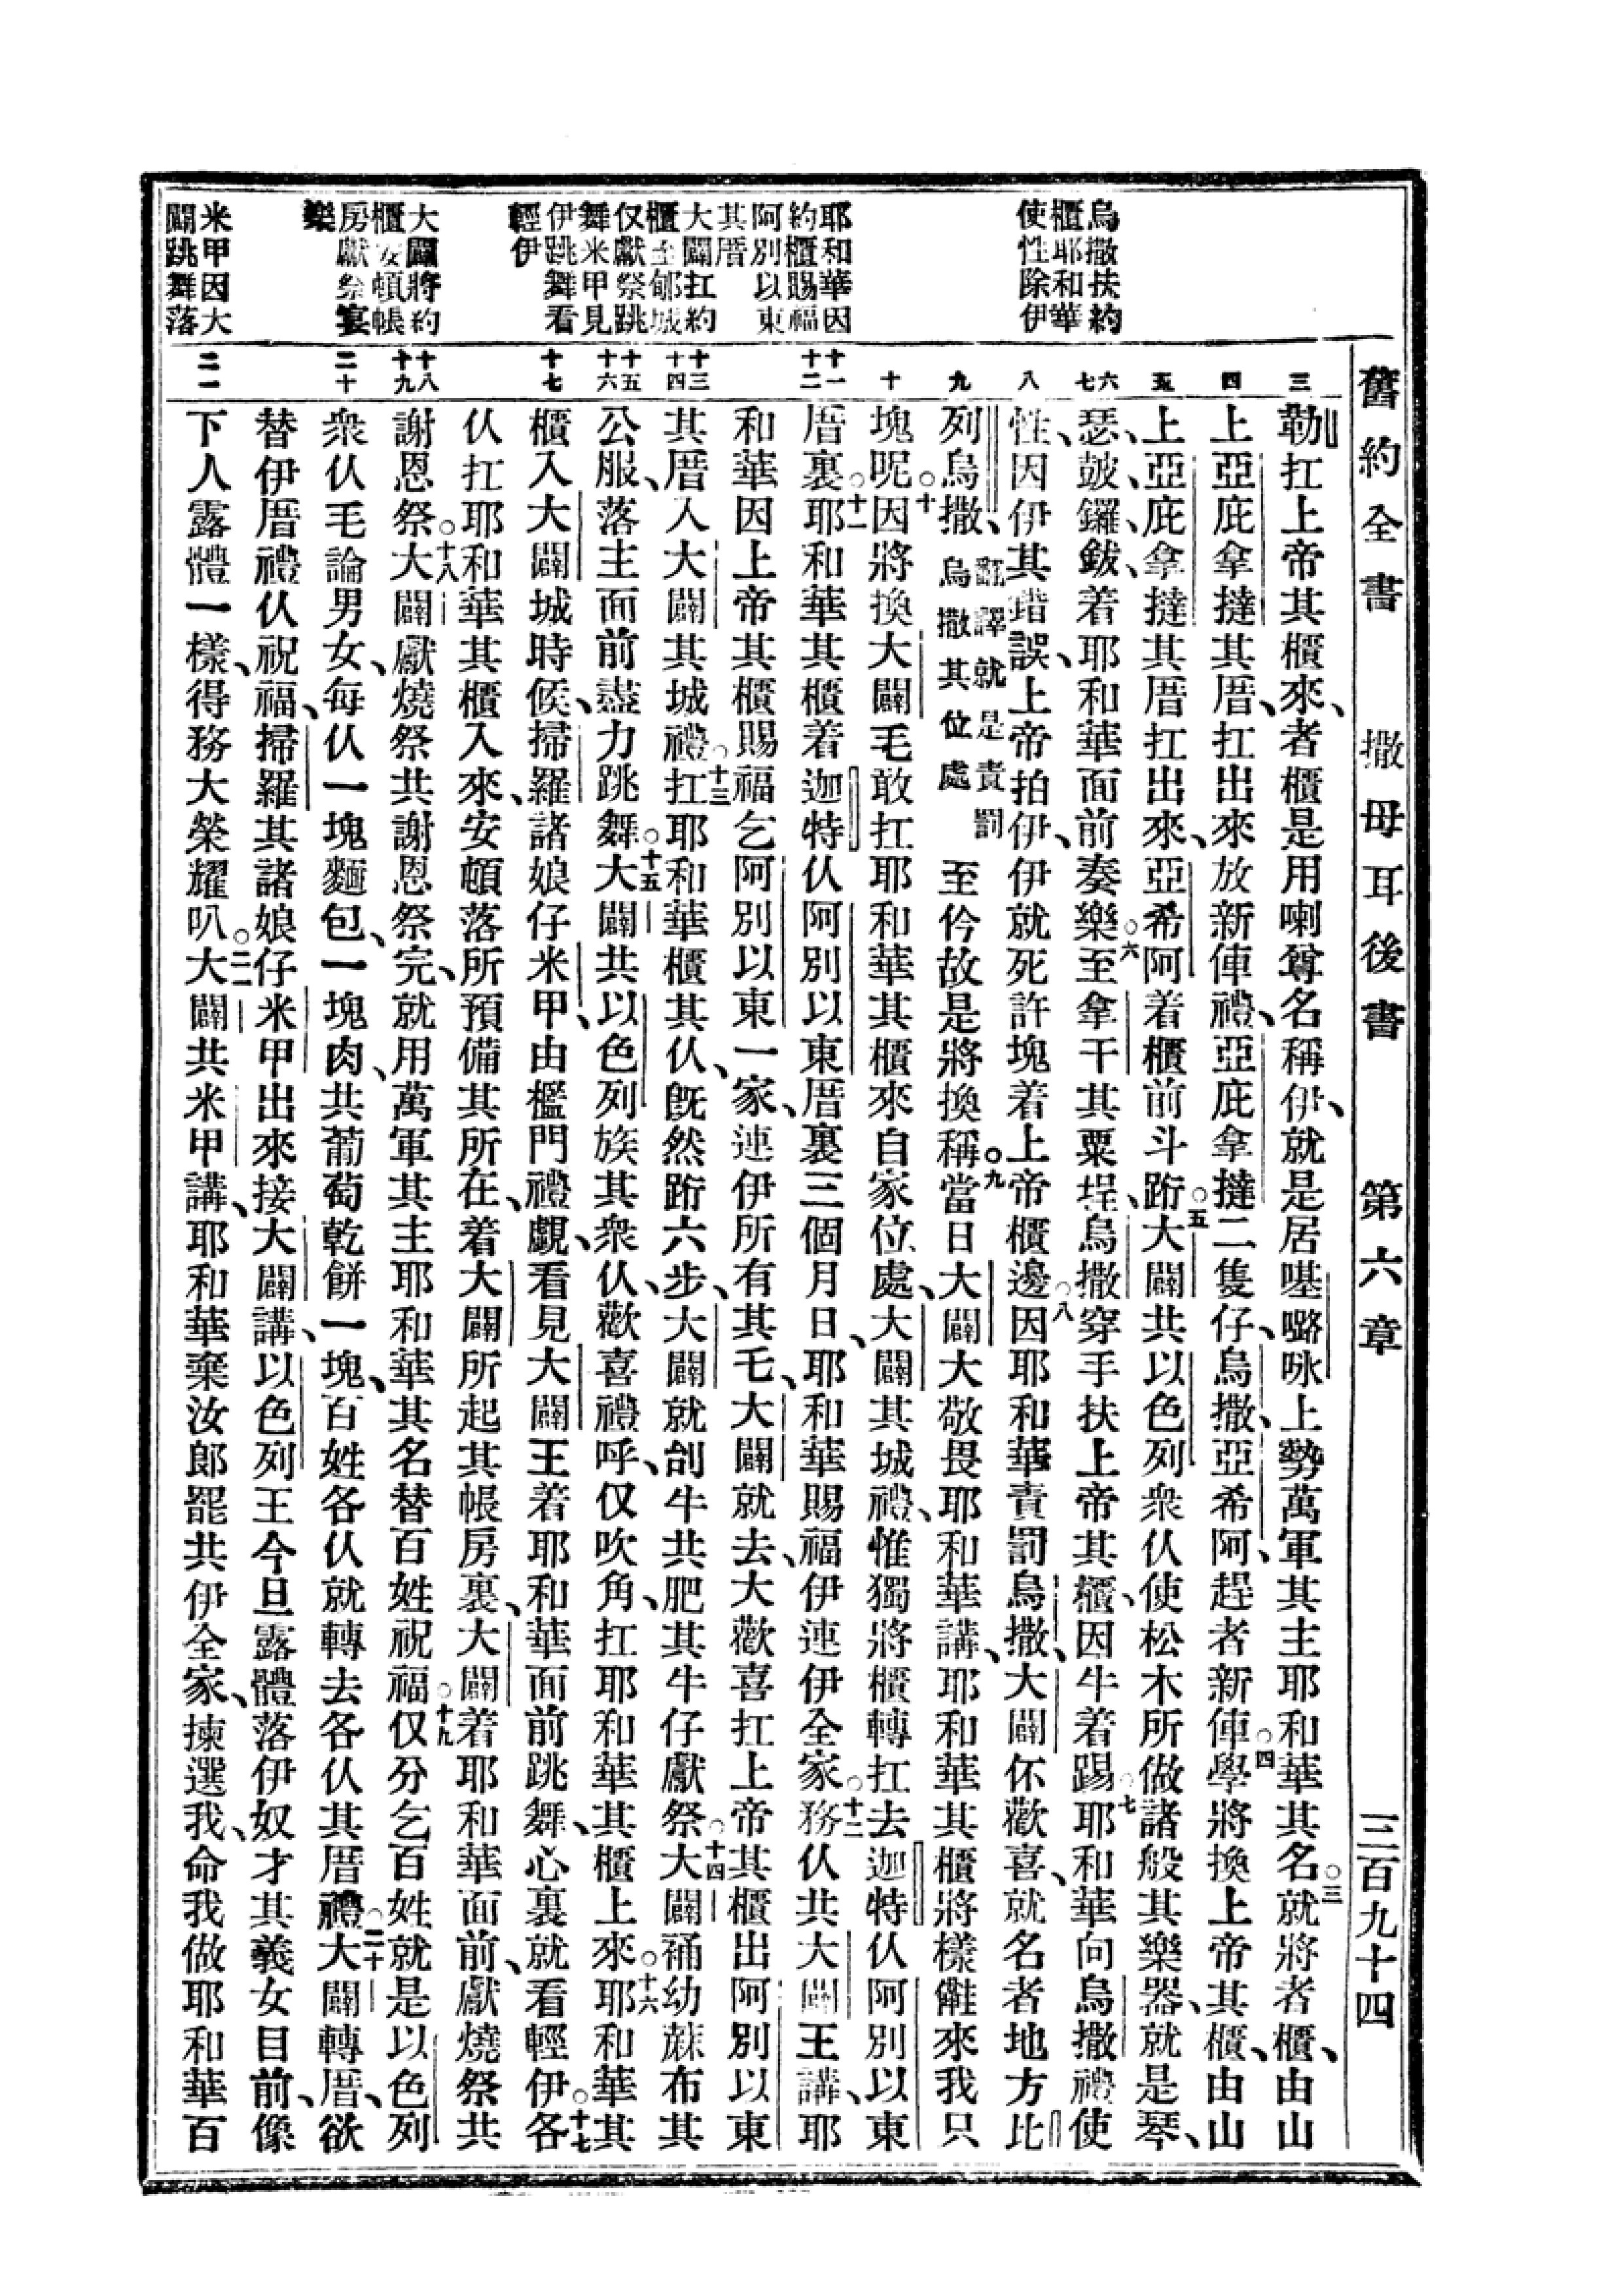 舊約全書 撒母耳後書 第六章 三百九十四
烏撒扶約
櫃耶和華
使性除伊
耶和華因
約櫃賜福
阿別以東
其厝
大闢扛約
櫃至郇城
仅獻祭跳
舞米甲見
伊跳舞看
輕伊
大闢將約
櫃安頓帳
房獻祭宴
樂
米甲因大
闢跳舞落
三
四
五
六
七
八
九
十
十一
十二
十三
十四
十五
十六
十七
十八
十九
二十
二一
勒扛上帝其櫃來、者櫃是用喇聳名稱伊、就是居𡀔嚕咏上勢萬軍其主耶和華其名○三就將者櫃、由山
上亞庇拿撻其厝、扛出來、放新俥禮、亞庇拿撻二隻仔、烏撒、亞希阿、趕者新俥○四學將換上帝其櫃、由山
上亞庇拿撻其厝扛出來、亞希阿着櫃前斗跡○五大闢共以色列衆仏使松木所做諸般其樂器、就是琴、
瑟、鼓、鑼、鈸、着耶和華面前、奏樂○六至拿干其粟埕、烏撒穿手扶上帝其櫃、因牛着踢○七耶和華向烏撒禮使
性、因伊其錯誤、上帝拍伊、伊就死許塊着上帝櫃邊○八因耶和華責罰烏撒、大闢伓歡喜、就名者地方比
列烏撒、翻譯就是責罰烏撒其位處至仱故是將換稱○九當日大闢大敬畏耶和華講、耶和華其櫃將樣㒤來我只
塊呢○十因將換大闢毛敢扛耶和華其櫃來自家位處、大闢其城禮、惟獨將櫃轉扛去迦特仏阿別以東
厝裏○十一耶和華其櫃着迦特仏阿別以東厝裏三個月日、耶和華賜福伊連伊全家○十二務仏共大闢王講、耶
和華因上帝其櫃賜福乞阿別以東一家、連伊所有其乇、大闢就去、大歡喜扛上帝其櫃出阿別以東
其厝入大闢其城禮○十三扛耶和華櫃其仏、旣然跡六步、大闢就刣牛共肥其牛仔獻祭○十四大闢䘄幼蔴布其
公服、落主面前盡力跳舞○十五大闢共以色列族其衆仏、歡喜禮呼、仅吹角、扛耶和華其櫃上來○十六耶和華其
櫃入大闢城時候、掃羅諸娘仔米甲、由檻門禮覷、看見大闢王着耶和華面前跳舞、心裏就看輕伊○十七各
仏扛耶和華其櫃入來、安頓落所預備其所在、着大闢所起其帳房裏、大闢着耶和華面前、獻燒祭共
謝恩祭○十八大闢獻燒祭共謝恩祭完、就用萬軍其主耶和華其名替百姓祝福○十九仅分乞百姓就是以色列
衆仏毛論男女、每仏一塊麵包、一塊肉、共葡萄乾餅一塊、百姓各仏就轉去各仏其厝禮○二十大闢轉厝、欲
替伊厝禮仏祝福、掃羅其諸娘仔米甲出來接大闢講、以色列王今旦露體落伊奴才其義女目前、像
下人露體一樣、得務大榮耀叭○二一大闢共米甲講、耶和華棄汝郎罷共伊全家、揀選我、命我做耶和華百